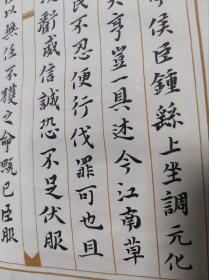 今侯臣鍾繇上坐調元化
夫亨豈一具述今江南草
民不忍便行伐罪可也且
觀威信誠恐不足伏服
以無任不獲之命甄已臣服